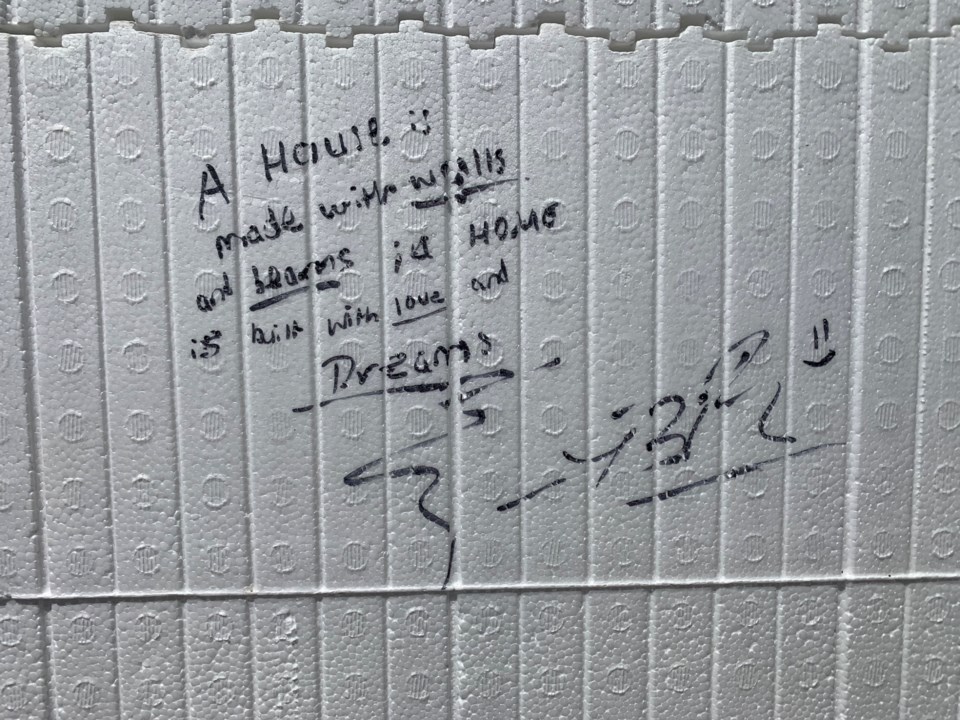 A House is
made with walls
and beams; a HOME
is built with love and
Dreams